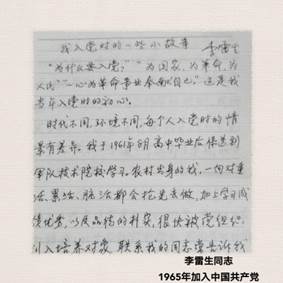 我入党时的一些小故事
李雷生
“为什么要入党？”“为国家，为革命，为
人民”“一心为革命事业奉献自己”这是我
当年入党时的初心。
时代不同，环境不同，每个人入党时的情
景有差异。我于1961年8月高中毕业后保送到
军队技术院校学习。农村出身的我，一向对重
活、累活、脏活都会抢先去做，加上学习成
绩优秀，以及品德的朴实，很快被党组织
引入培养对象 联系我的同志常告诉我
李雷生同志
1965年加入中国共产党